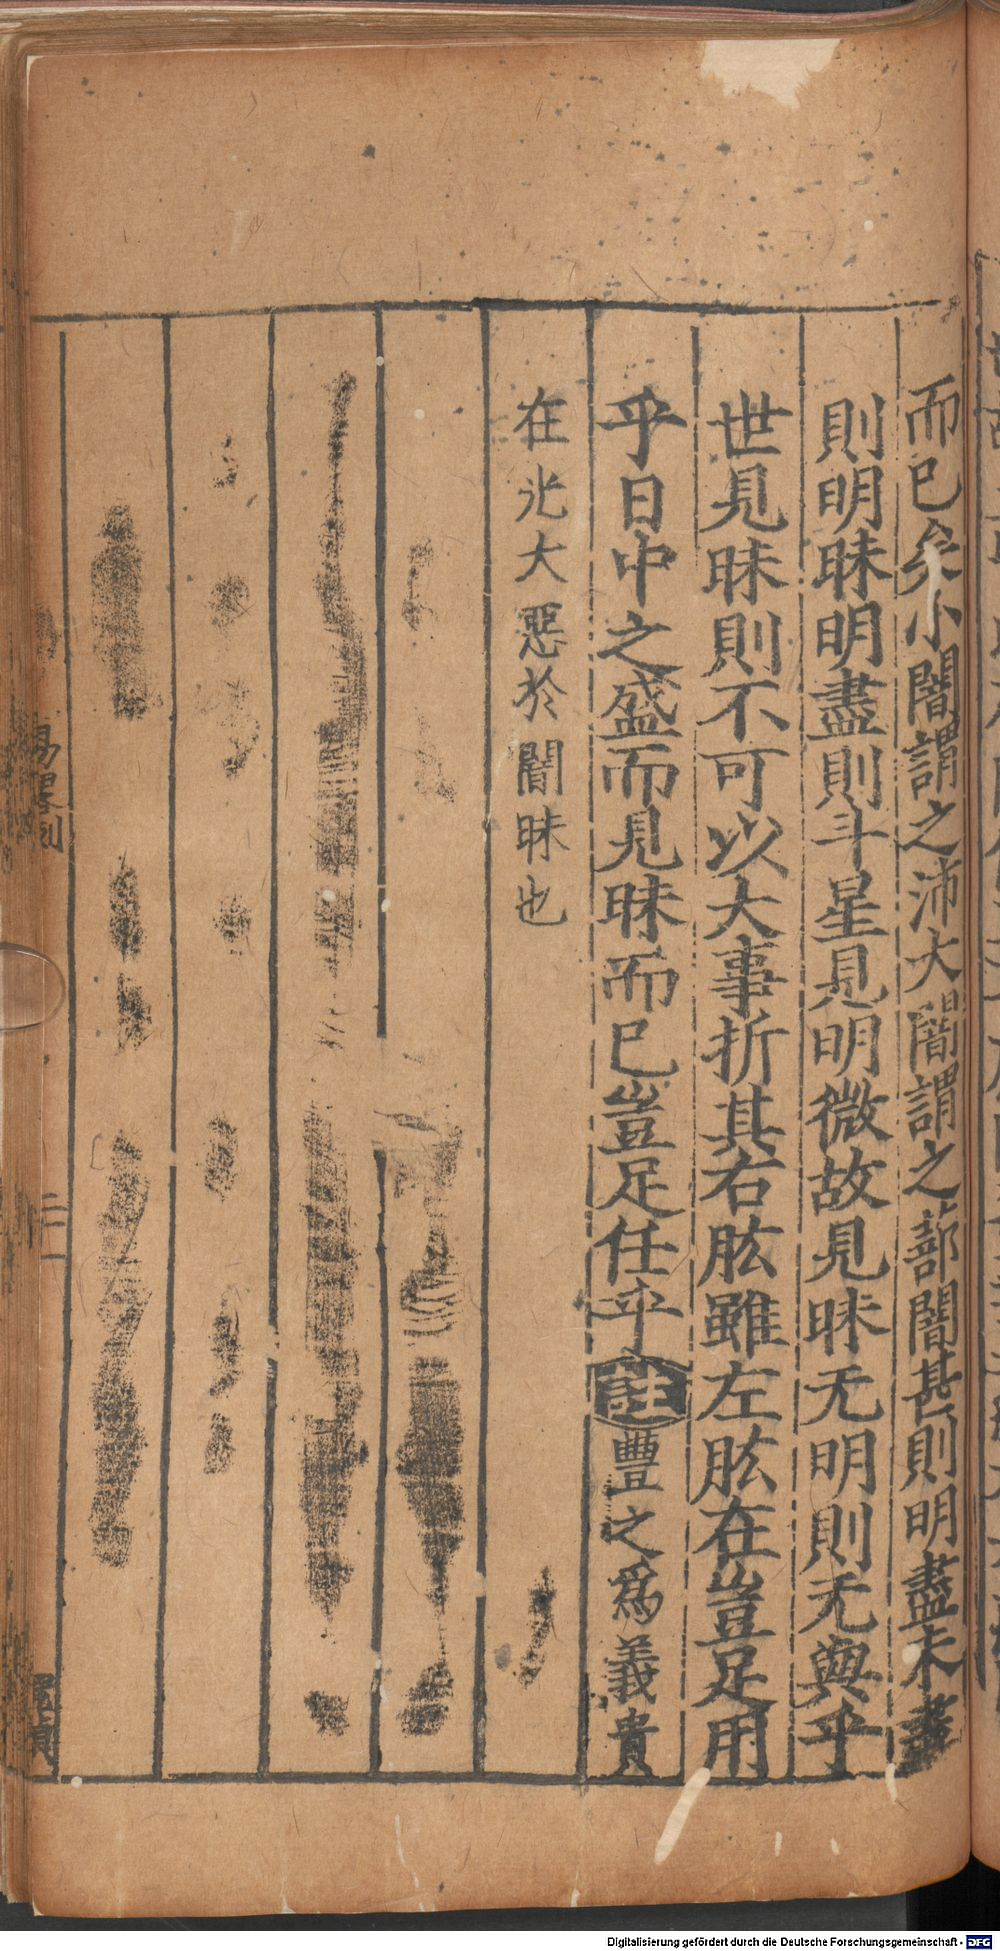 而已矣小闇謂之沛大闇謂之蔀闇甚則明盡未盡
則明昧明盡則斗星見明微故見昧无明則无與乎
世見昧則不可以大事折其右肱雖左肱在豈足用
乎日中之盛而見昧而已豈足任乎註豐之爲義貴
在光大惡於闇昧也
易畧例
二十一
Digitalisierung gefördert durch die Deutsche Forschungsgemeinschaft - DFG